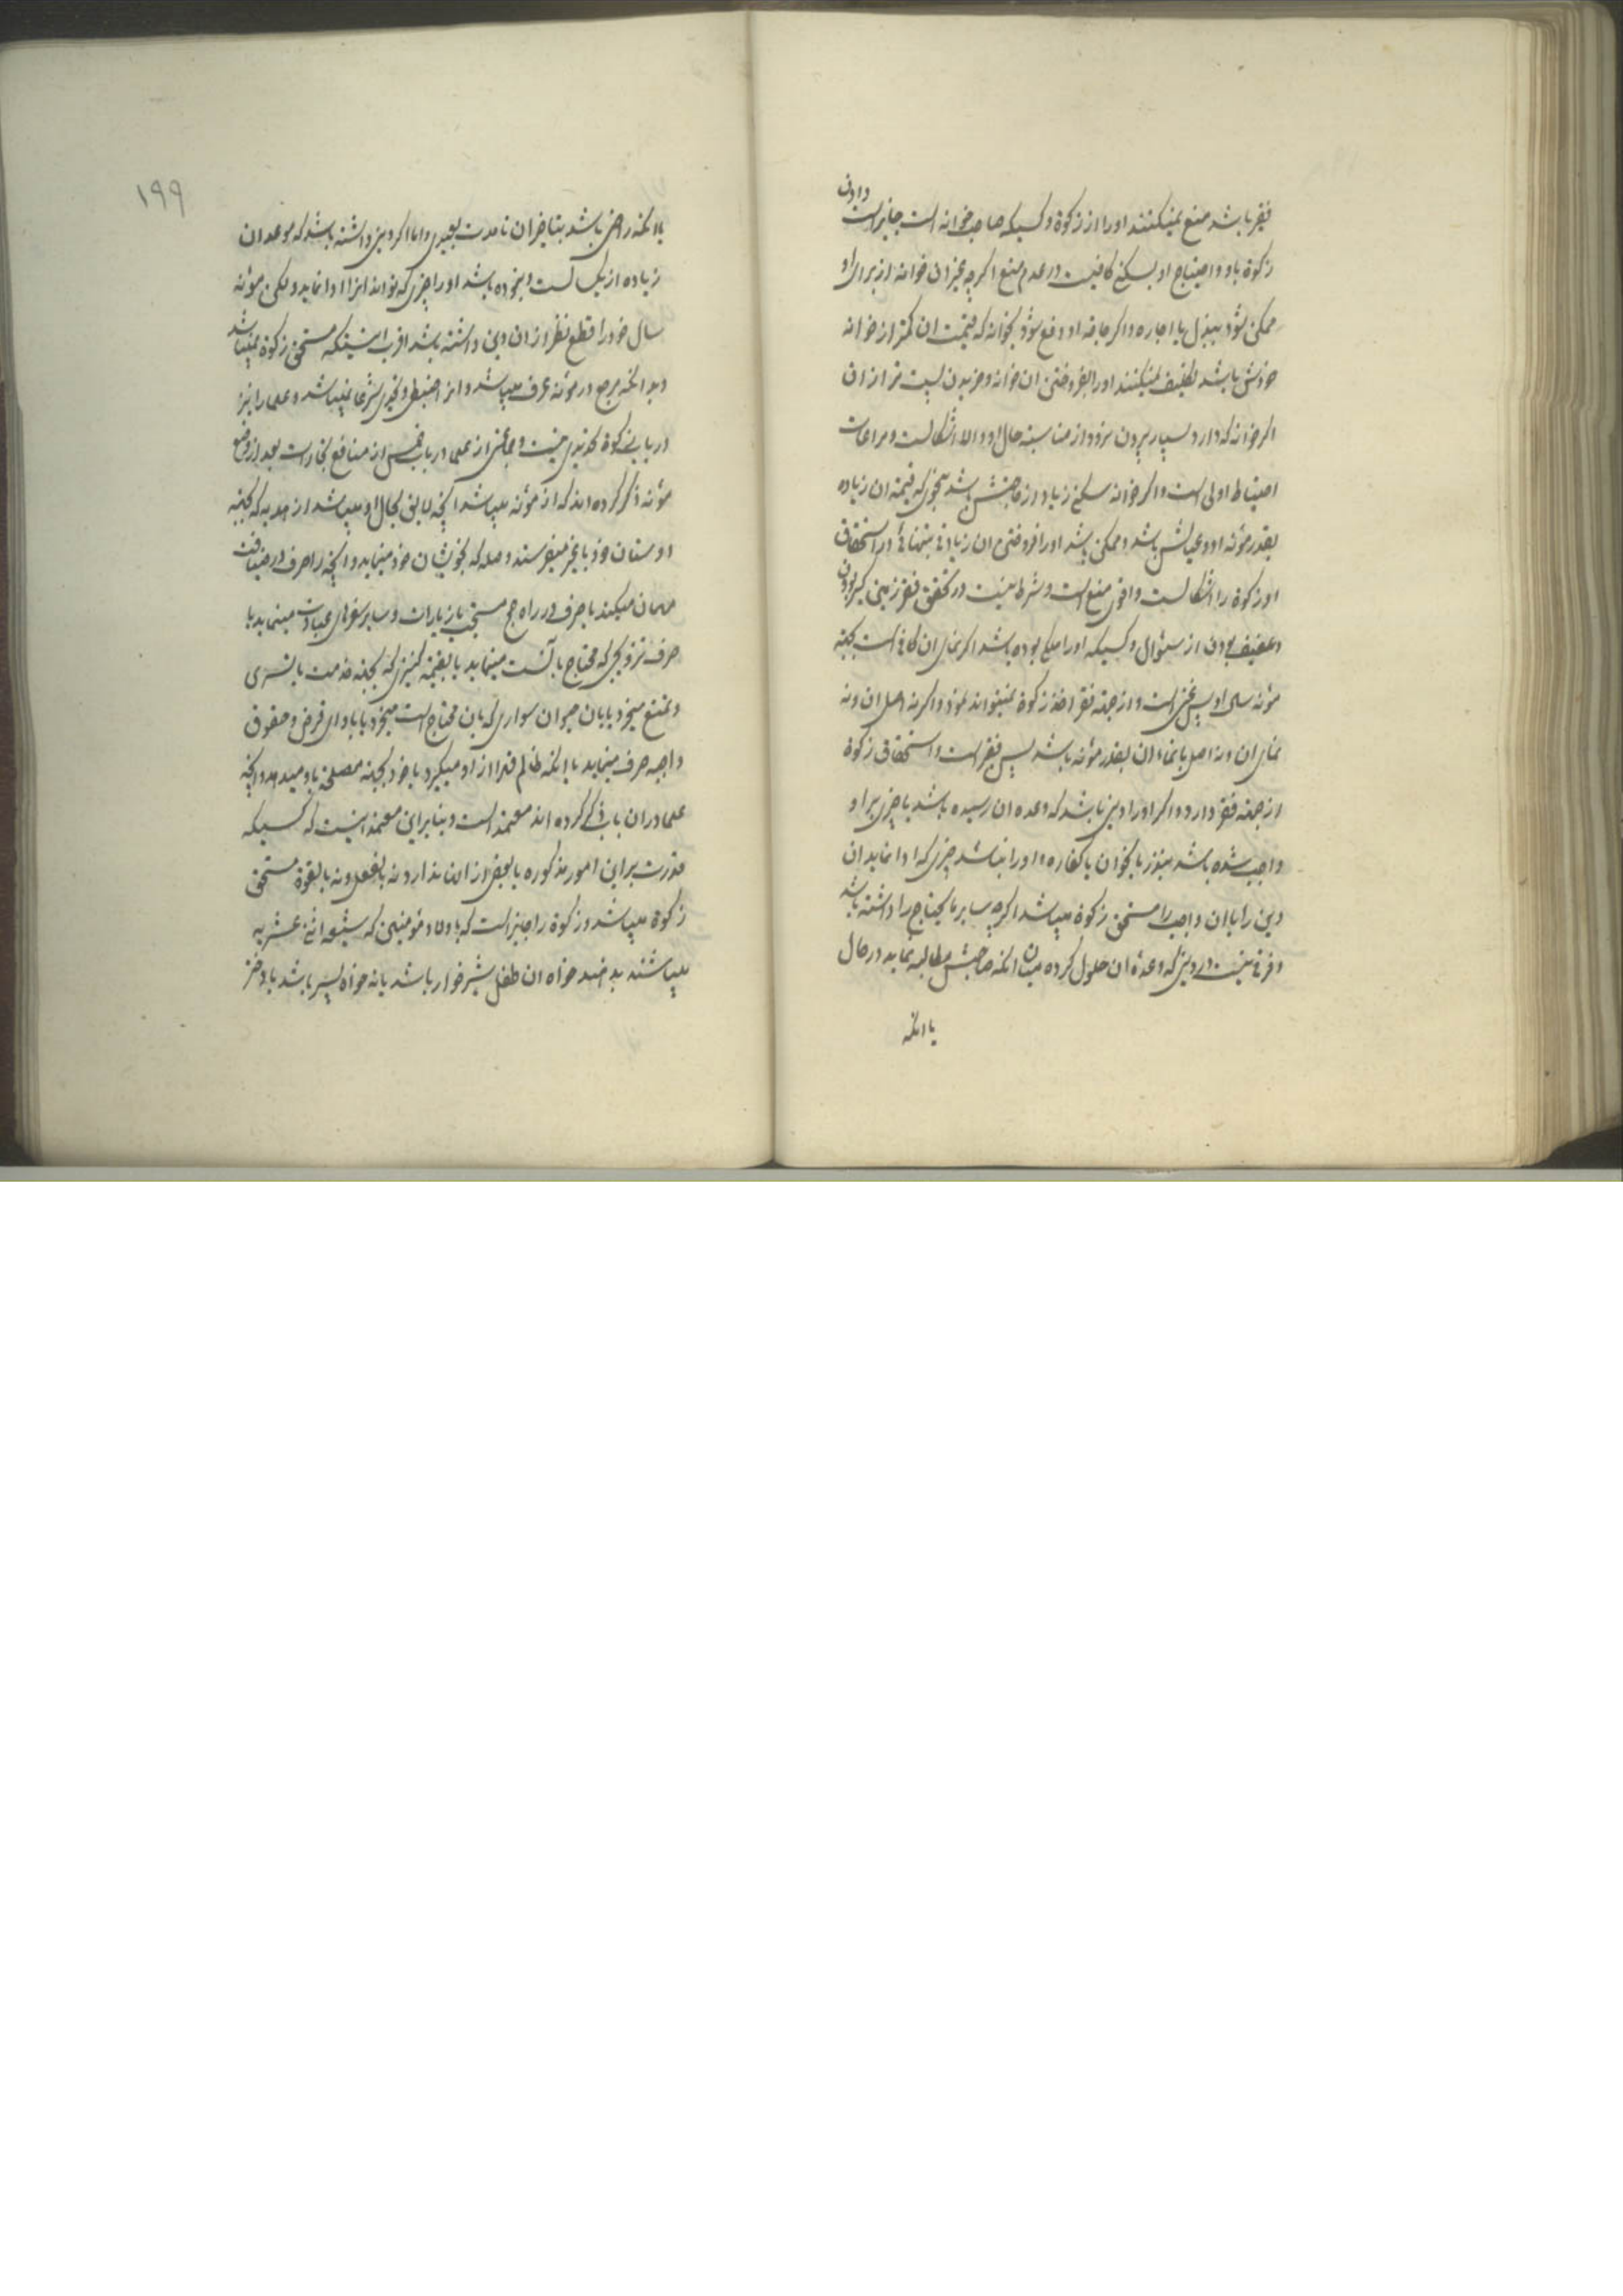 فقیر باشد منع نمیکنند او را از زکوة و کسیکه صاحب خوانه است جایز است دادن
زکوة باو و احتیاج او بسکنی کافیست در عدم منع اگرچه بغیر ان خوانه از برای او
ممکن شود ببذل یا اجاره و اگر حاجة او رفع شود بخوانه که قیمت ان کمتر از خوانه
خودش باشد تکلیف نمیکنند او را بفروختن ان خوانه و خریدن پست تر از ان
اگر خوانه که دارد بسیار بیرون نرود از مناسبة حال او و الا اشکالست و مراعات
احتیاط اولی است و اگر خوانه سکنی زیاد از حاجتش باشد بنحوی که قیمة ان زیاده
بقدر مؤنه او و عیالش باشد و ممکن باشد او را فروختن ان زیادتی بتنهائی در استحقاق
او زکوة را اشکالست و اقوی منع است و شرط نیست در تحقق فقر زمین گیر بودن
و عفیف بودن از سئوال و کسیکه او را ملکی بوده باشد اگر نمای ان کافی است بجهة
مؤنه سال او پس غنی است و از جهة فقر اخذ زکوة نمیتواند نمود و اگر نه اصل ان و نه
نمای ان و نه اصل با نماء ان بقدر مؤنه باشد پس فقیر است و استحقاق زکوة
از جهة فقر دارد و اگر او را دینی باشد که وعده ان رسیده باشد یا چیزی بر او
واجب شده باشد بنذر یا بخوان یا کفاره و او را نباشد چیزی که ادا نماید ان
دین را یا ان واجب را مستحق زکوة میباشد اگرچه سایر مایحتاج را داشته باشد
و فرقی نیست در دینی که وعدۀ ان حلول کرده میان انکه صاحبش مطالبه نماید در حال
یا انکه
۱۹۹
یا انکه راضی باشد بتاخیر ان تا مدت بعیدی و اما اگر دینی داشته باشد که موعد ان
زیاده از یک سال است و نبوده باشد او را چیزی که تواند انرا ادا نماید و لکن مؤنه
سال خود را قطع نظر از ان دین داشته باشد اقرب اینست که مستحق زکوة نمیباشد
و بدانکه مرجع در مؤنه عرف میباشد و انرا ضبطی و تحدیدی شرعا نمیباشد و علما را نیز
در باب زکوة تحدیدی نیست و جمعی از علما در باب خمس از منافع تجارات بعد از وضع
مؤنه ذکر کرده اند که از مؤنه میباشد انچه لایق بحال او میباشد از هدیه که بجهة
دوستان خود یا غیر میفرستد و صله که بخویشان خود مینماید و انچه را صرف در ضیافت
مهمان میکند یا صرف در راه حج مستحب یا زیارات و سایر سفرهای عبادات مینماید یا
صرف تزویجی که محتاج بانست مینماید یا بقیمة کنیزی که بجهة خدمت یا تسری
و تمتع میخرد یا بان حیوان سواری که بان محتاج است میخرد یا بادای قرض و حقوق
واجبه صرف مینماید یا انکه ظالم قدرا از او میگیرد یا خود بجهة مصلحتی باو میدهد و انچه
علما در ان باب ذکر کرده اند معتمد است و بنابراین معتمد اینست که کسیکه
قدرت بر این امور مذکوره یا بعض از انها ندارد نه بالفعل و نه بالقوة مستحق
زکوة میباشد و زکوة را جایز است که باولاد مؤمنین که شیعه اثنی عشریه
میباشند بدهند خواه ان طفل شیرخوار باشد یا نه خواه پسر باشد یا دختر